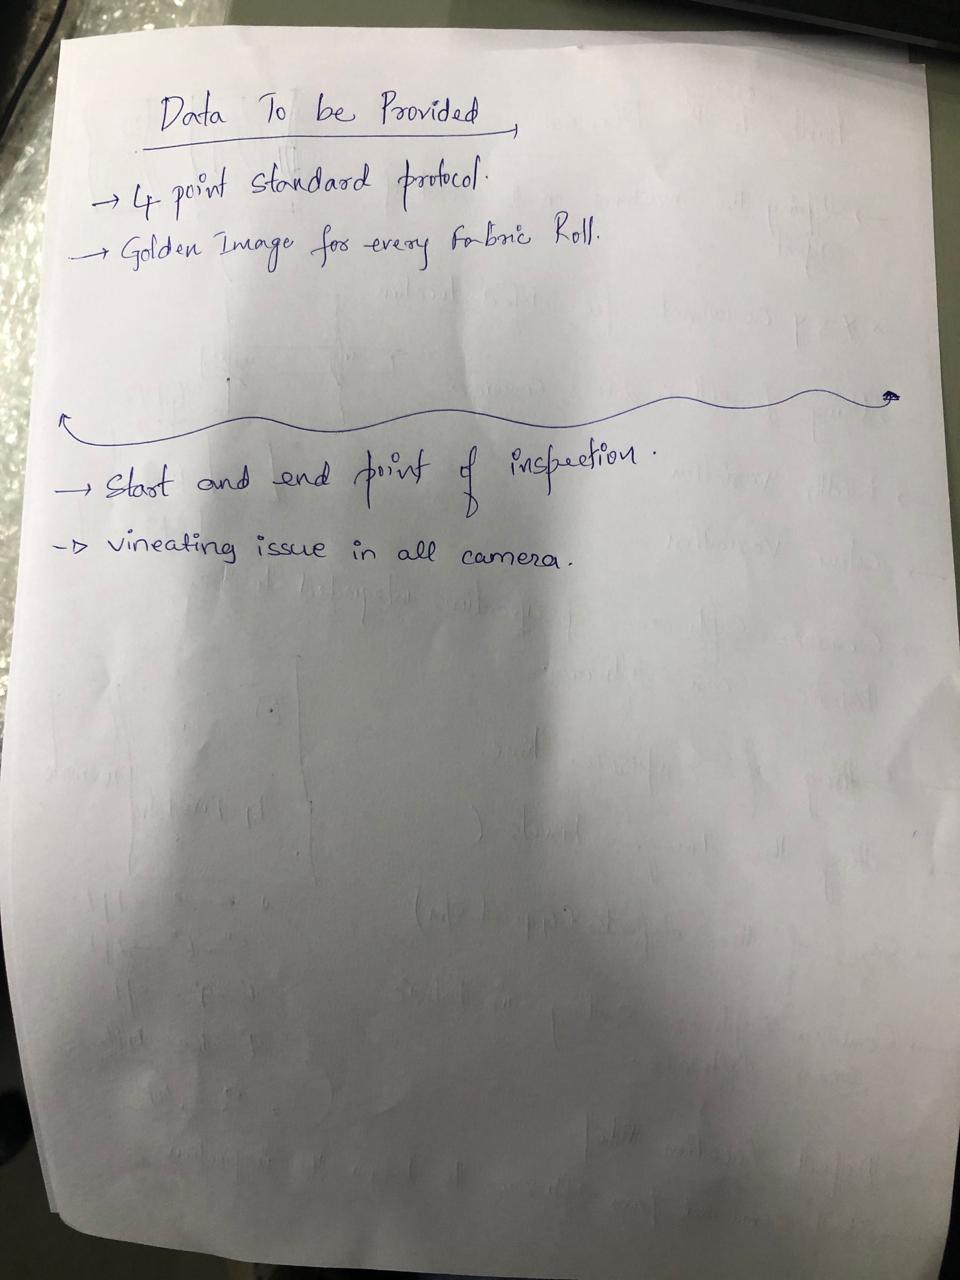 Data To be Provided
→ 4 point standard protocol.
→ Golden Image for every Fabric Roll.
→ Start and end point of inspection.
→ vineating issue in all camera.